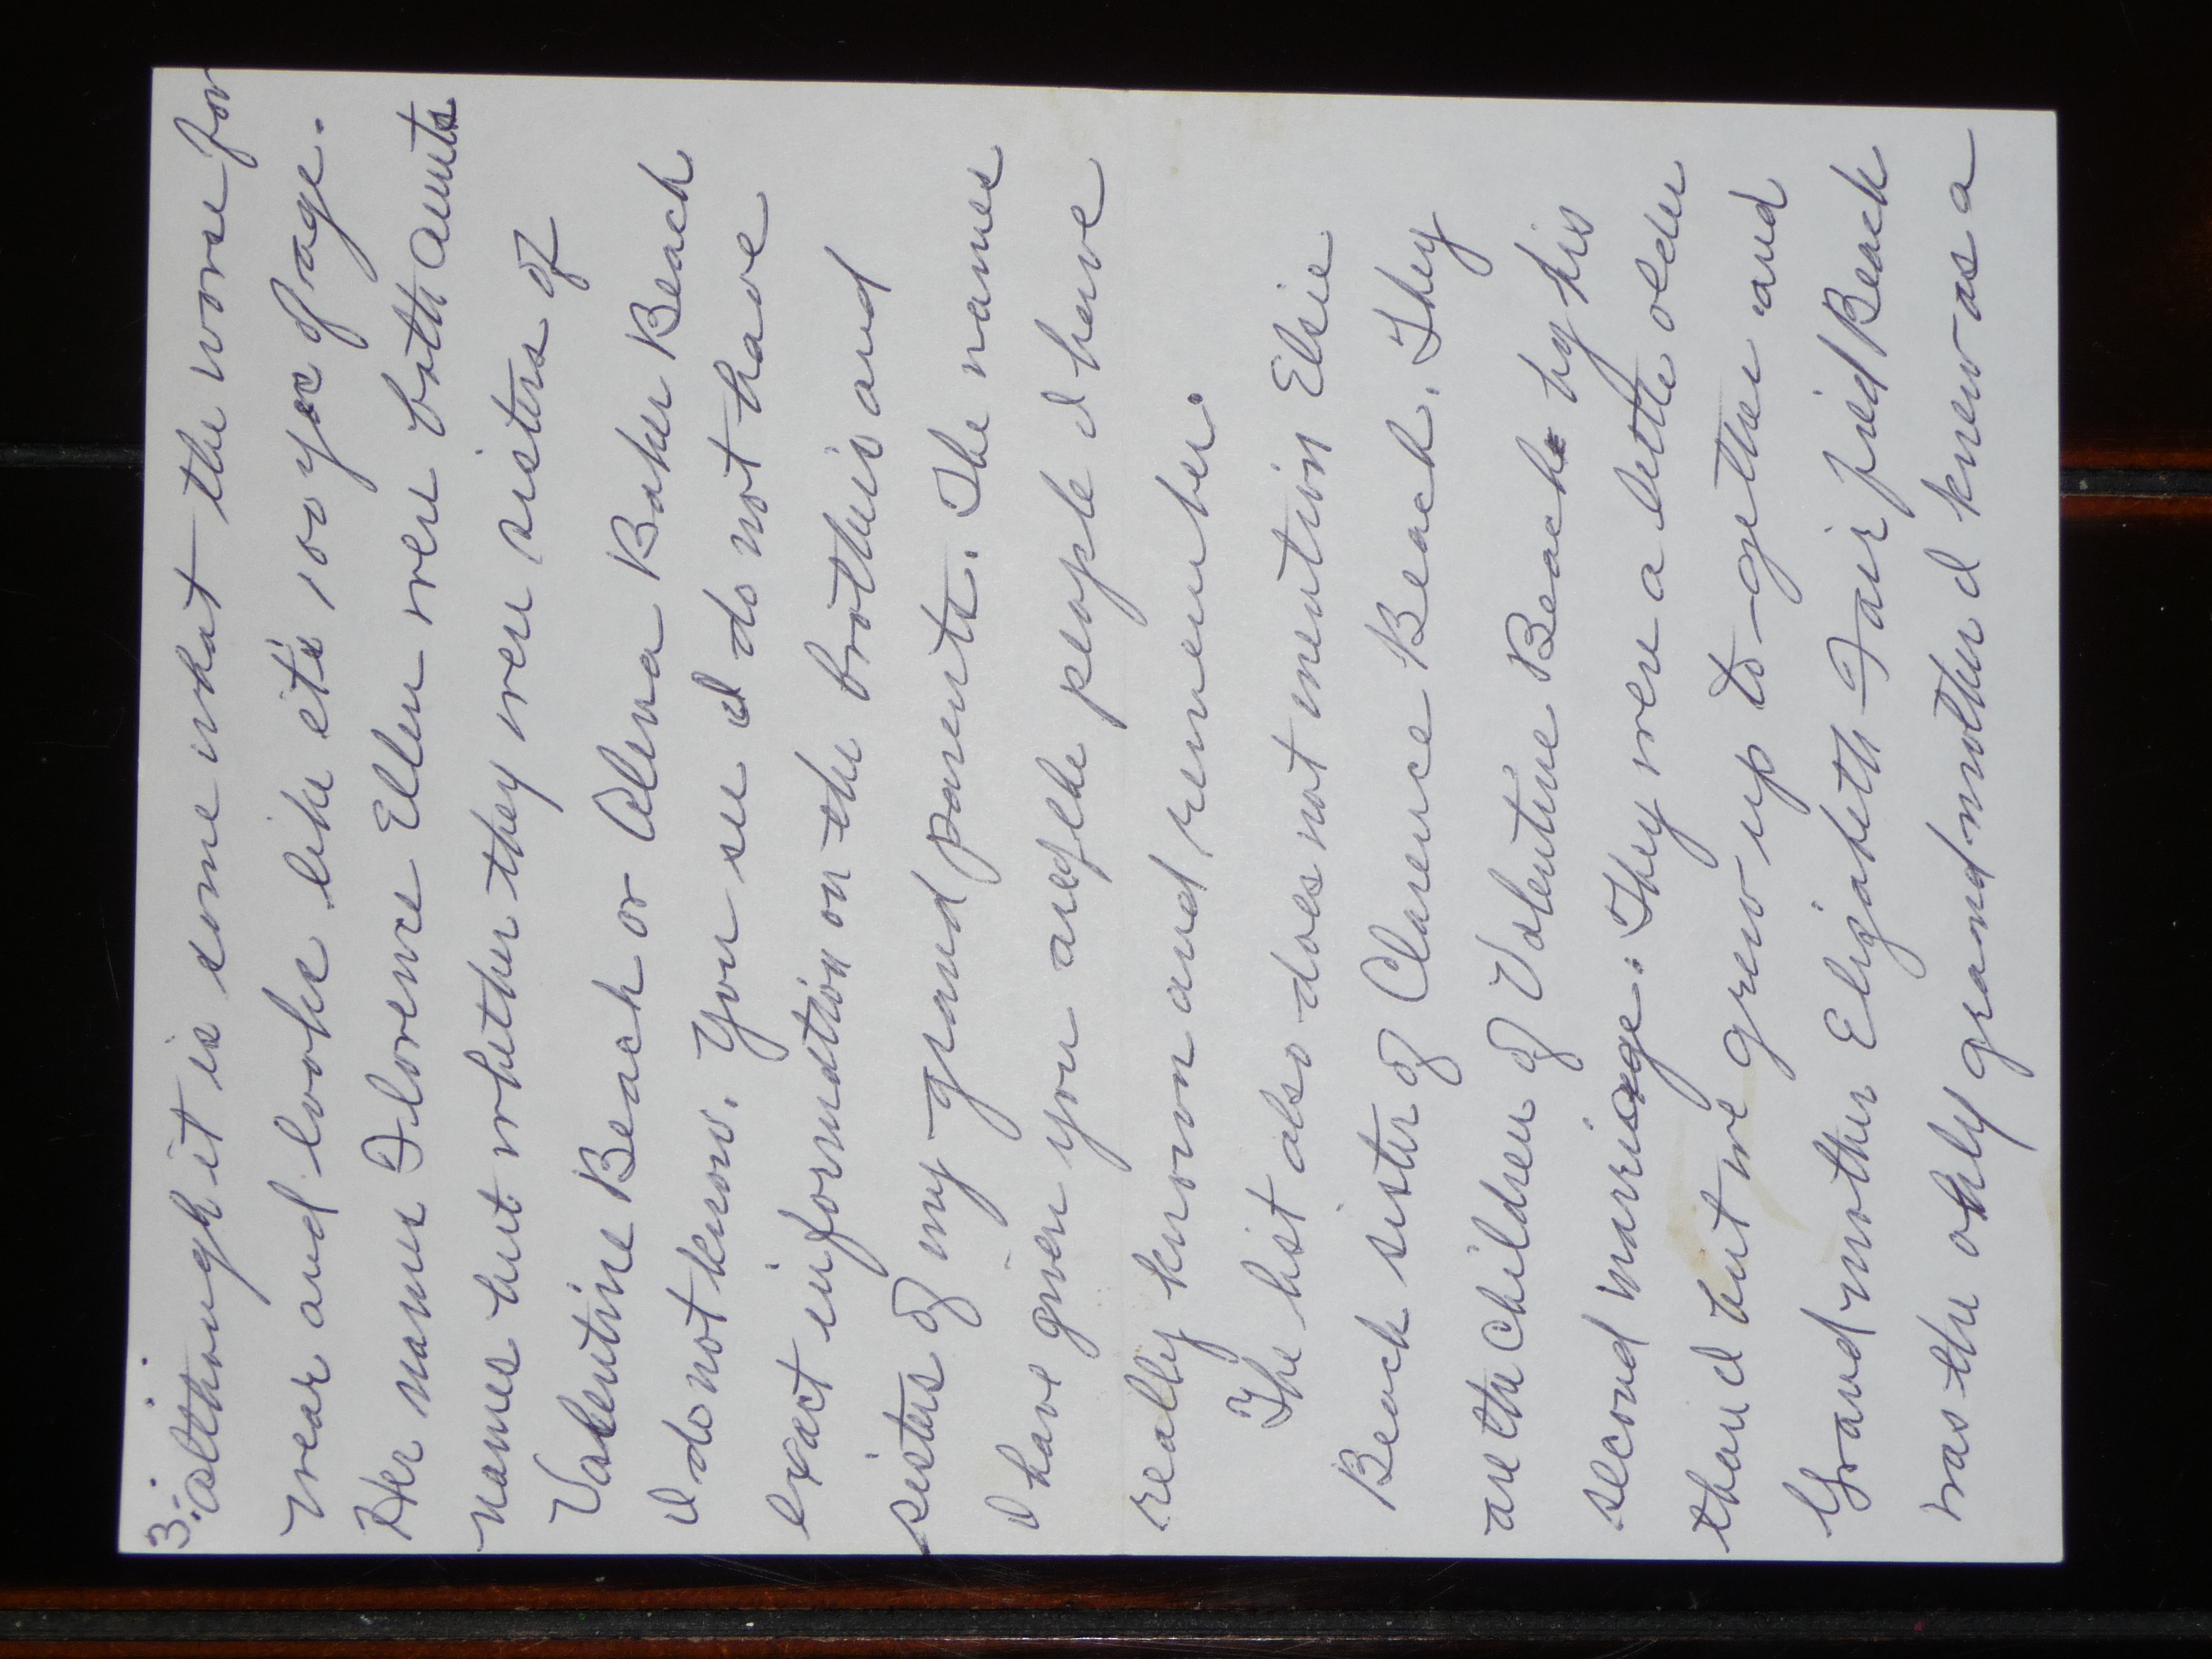 3.
although it is some what the worse for
wear and looks like it's 100 yrs of age.
Her names Florence Ellen were both aunts
names but whether they were sisters of
Valentine Beach or Alena Baker Beach
I do not know. You see I do not have
exact information on the brothers and
sisters of my grand parents. The names
I have given you are the people I have
really known and remember.
The list also does not mention Elsie
Beach sister of Clarence Beach. They
are the children of Valentine Beach by his
second marriage. They were a little older
than I but we grew up to-gether and
Grandmother Elizabeth Fairfield Beach
was the only grandmother I knew as a